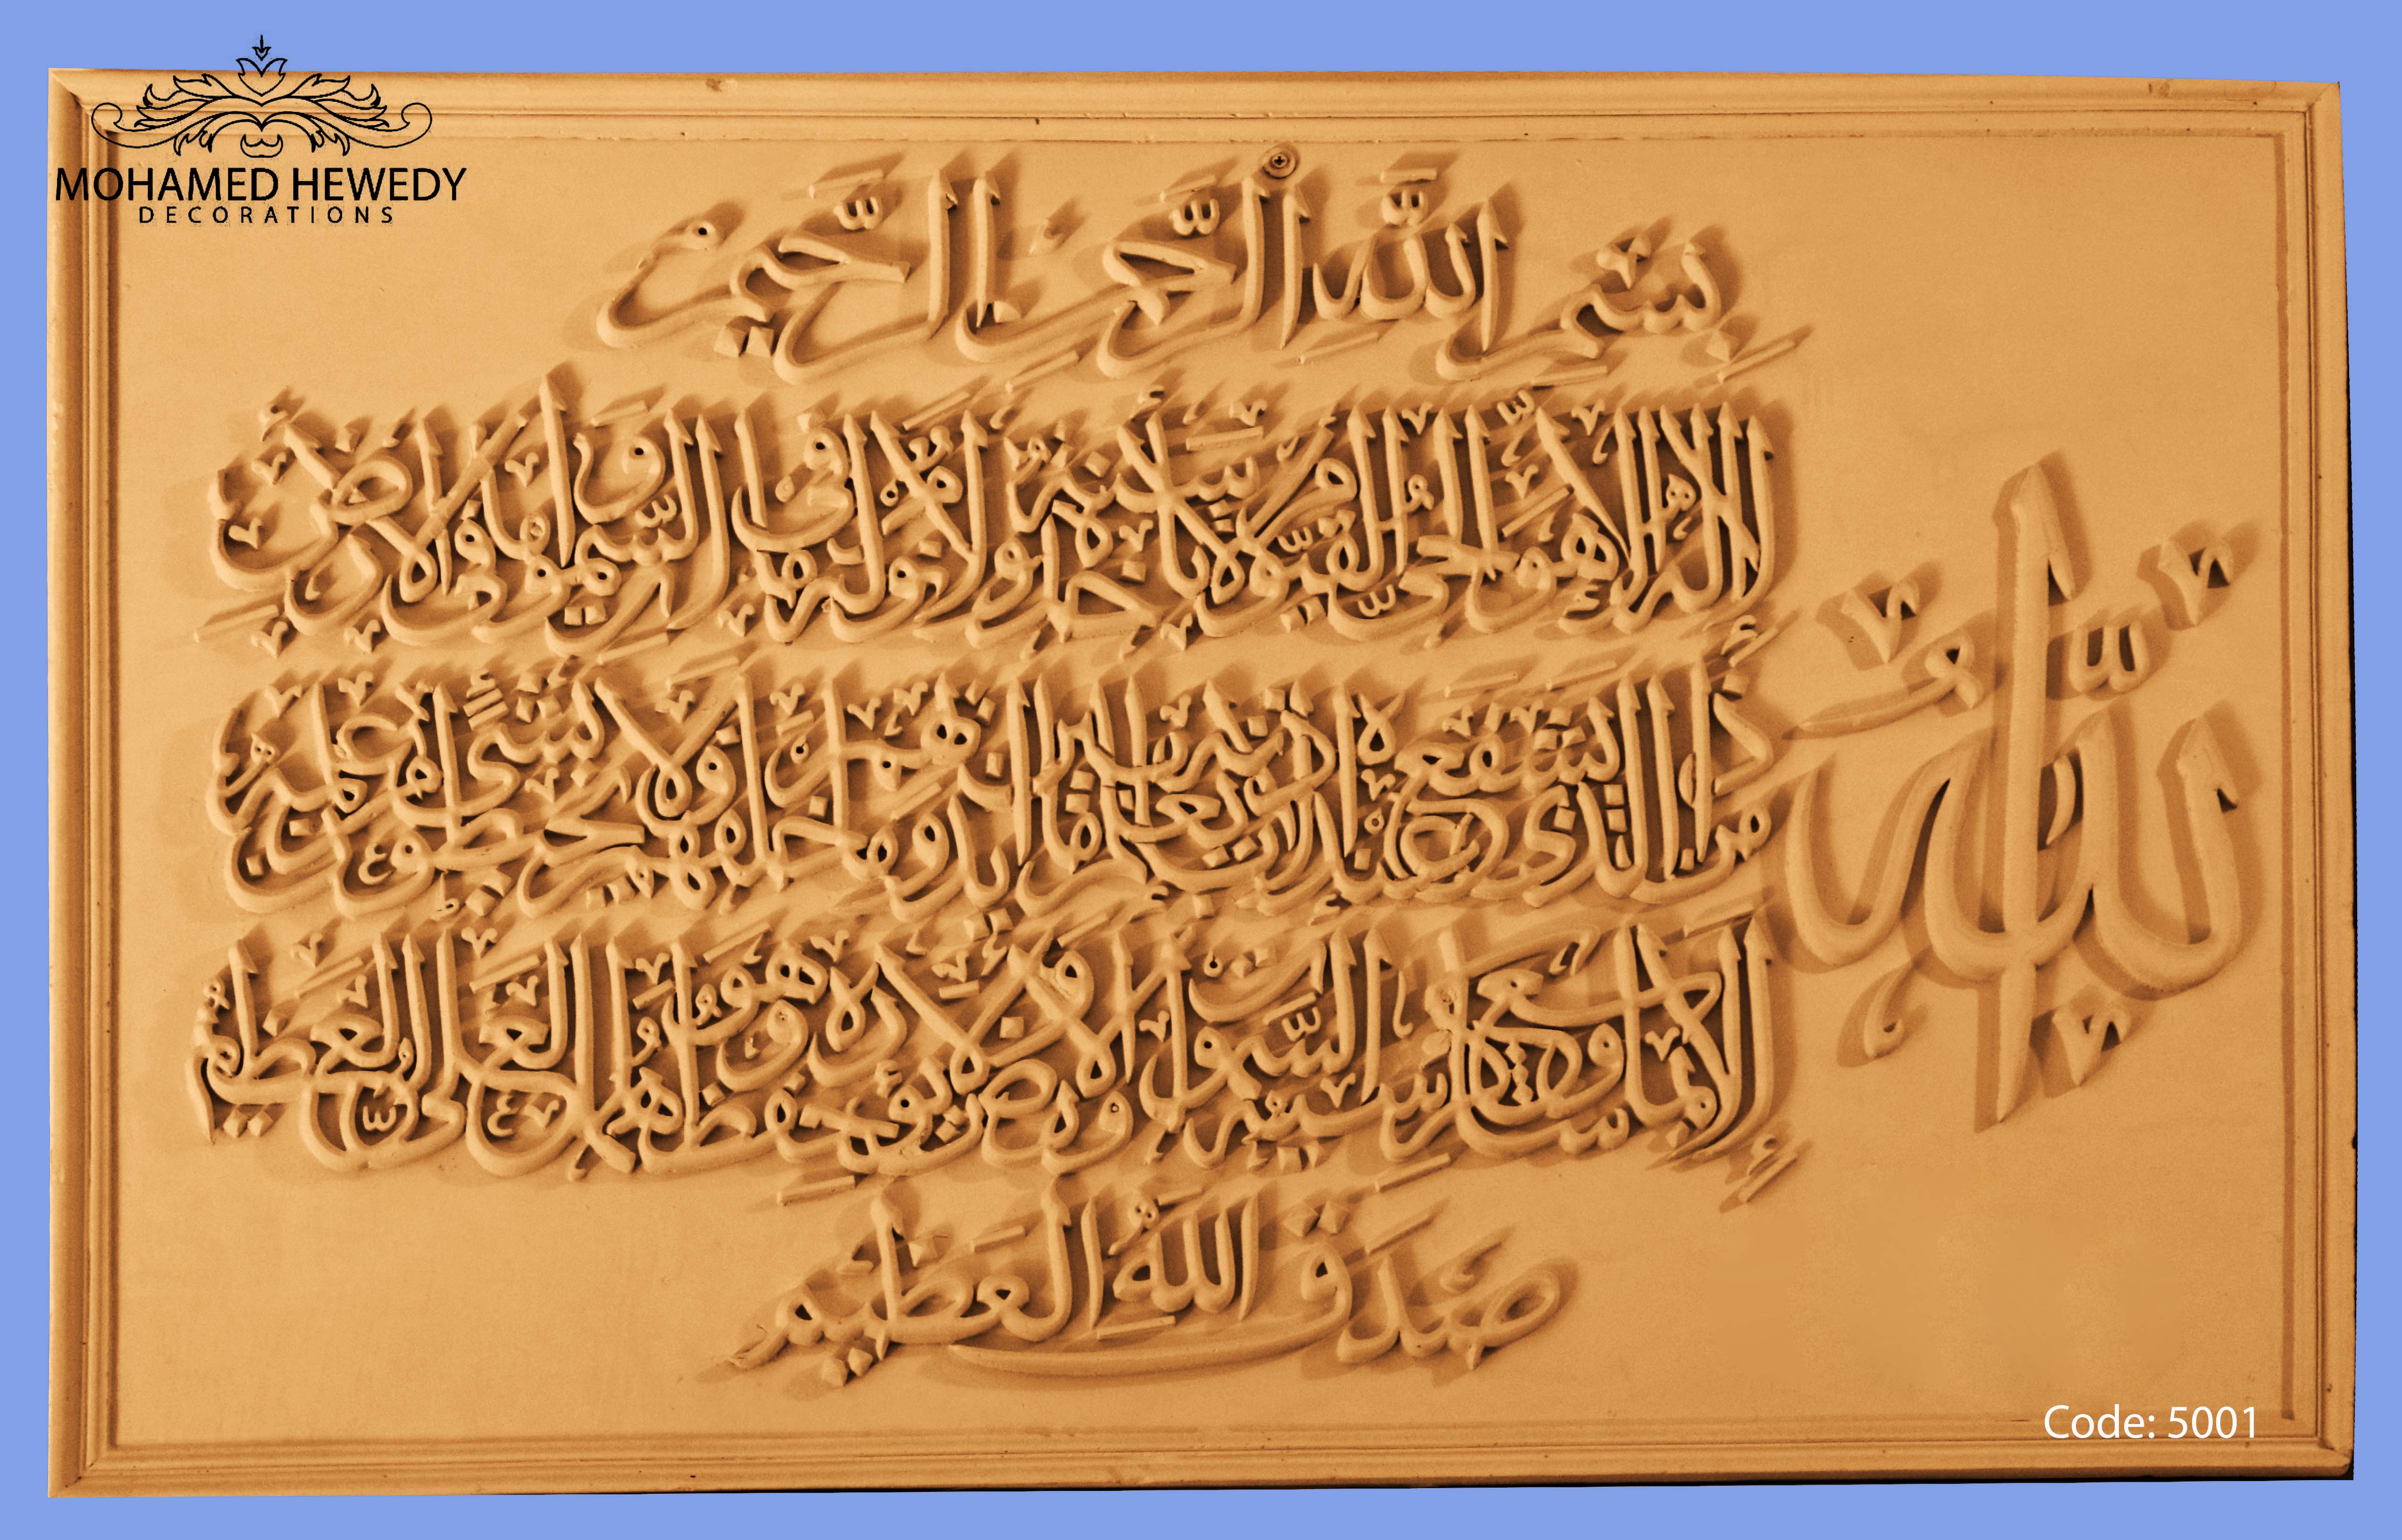 MOHAMED HEWEDY
DECORATIONS
بِسْمِ اللَّهِ الرَّحْمَنِ الرَّحِيمِ
اللَّهُ
لَا إِلَهَ إِلَّا هُوَ الْحَيُّ الْقَيُّومُ لَا تَأْخُذُهُ سِنَةٌ وَلَا نَوْمٌ لَهُ مَا فِي السَّمَوَاتِ وَمَا فِي الْأَرْضِ
مَنْ ذَا الَّذِي يَشْفَعُ عِنْدَهُ إِلَّا بِإِذْنِهِ يَعْلَمُ مَا بَيْنَ أَيْدِيهِمْ وَمَا خَلْفَهُمْ وَلَا يُحِيطُونَ بِشَيْءٍ مِنْ عِلْمِهِ
إِلَّا بِمَا شَاءَ وَسِعَ كُرْسِيُّهُ السَّمَوَاتِ وَالْأَرْضَ وَلَا يَئُودُهُ حِفْظُهُمَا وَهُوَ الْعَلِيُّ الْعَظِيمُ
صَدَقَ اللَّهُ الْعَظِيمِ
Code: 5001